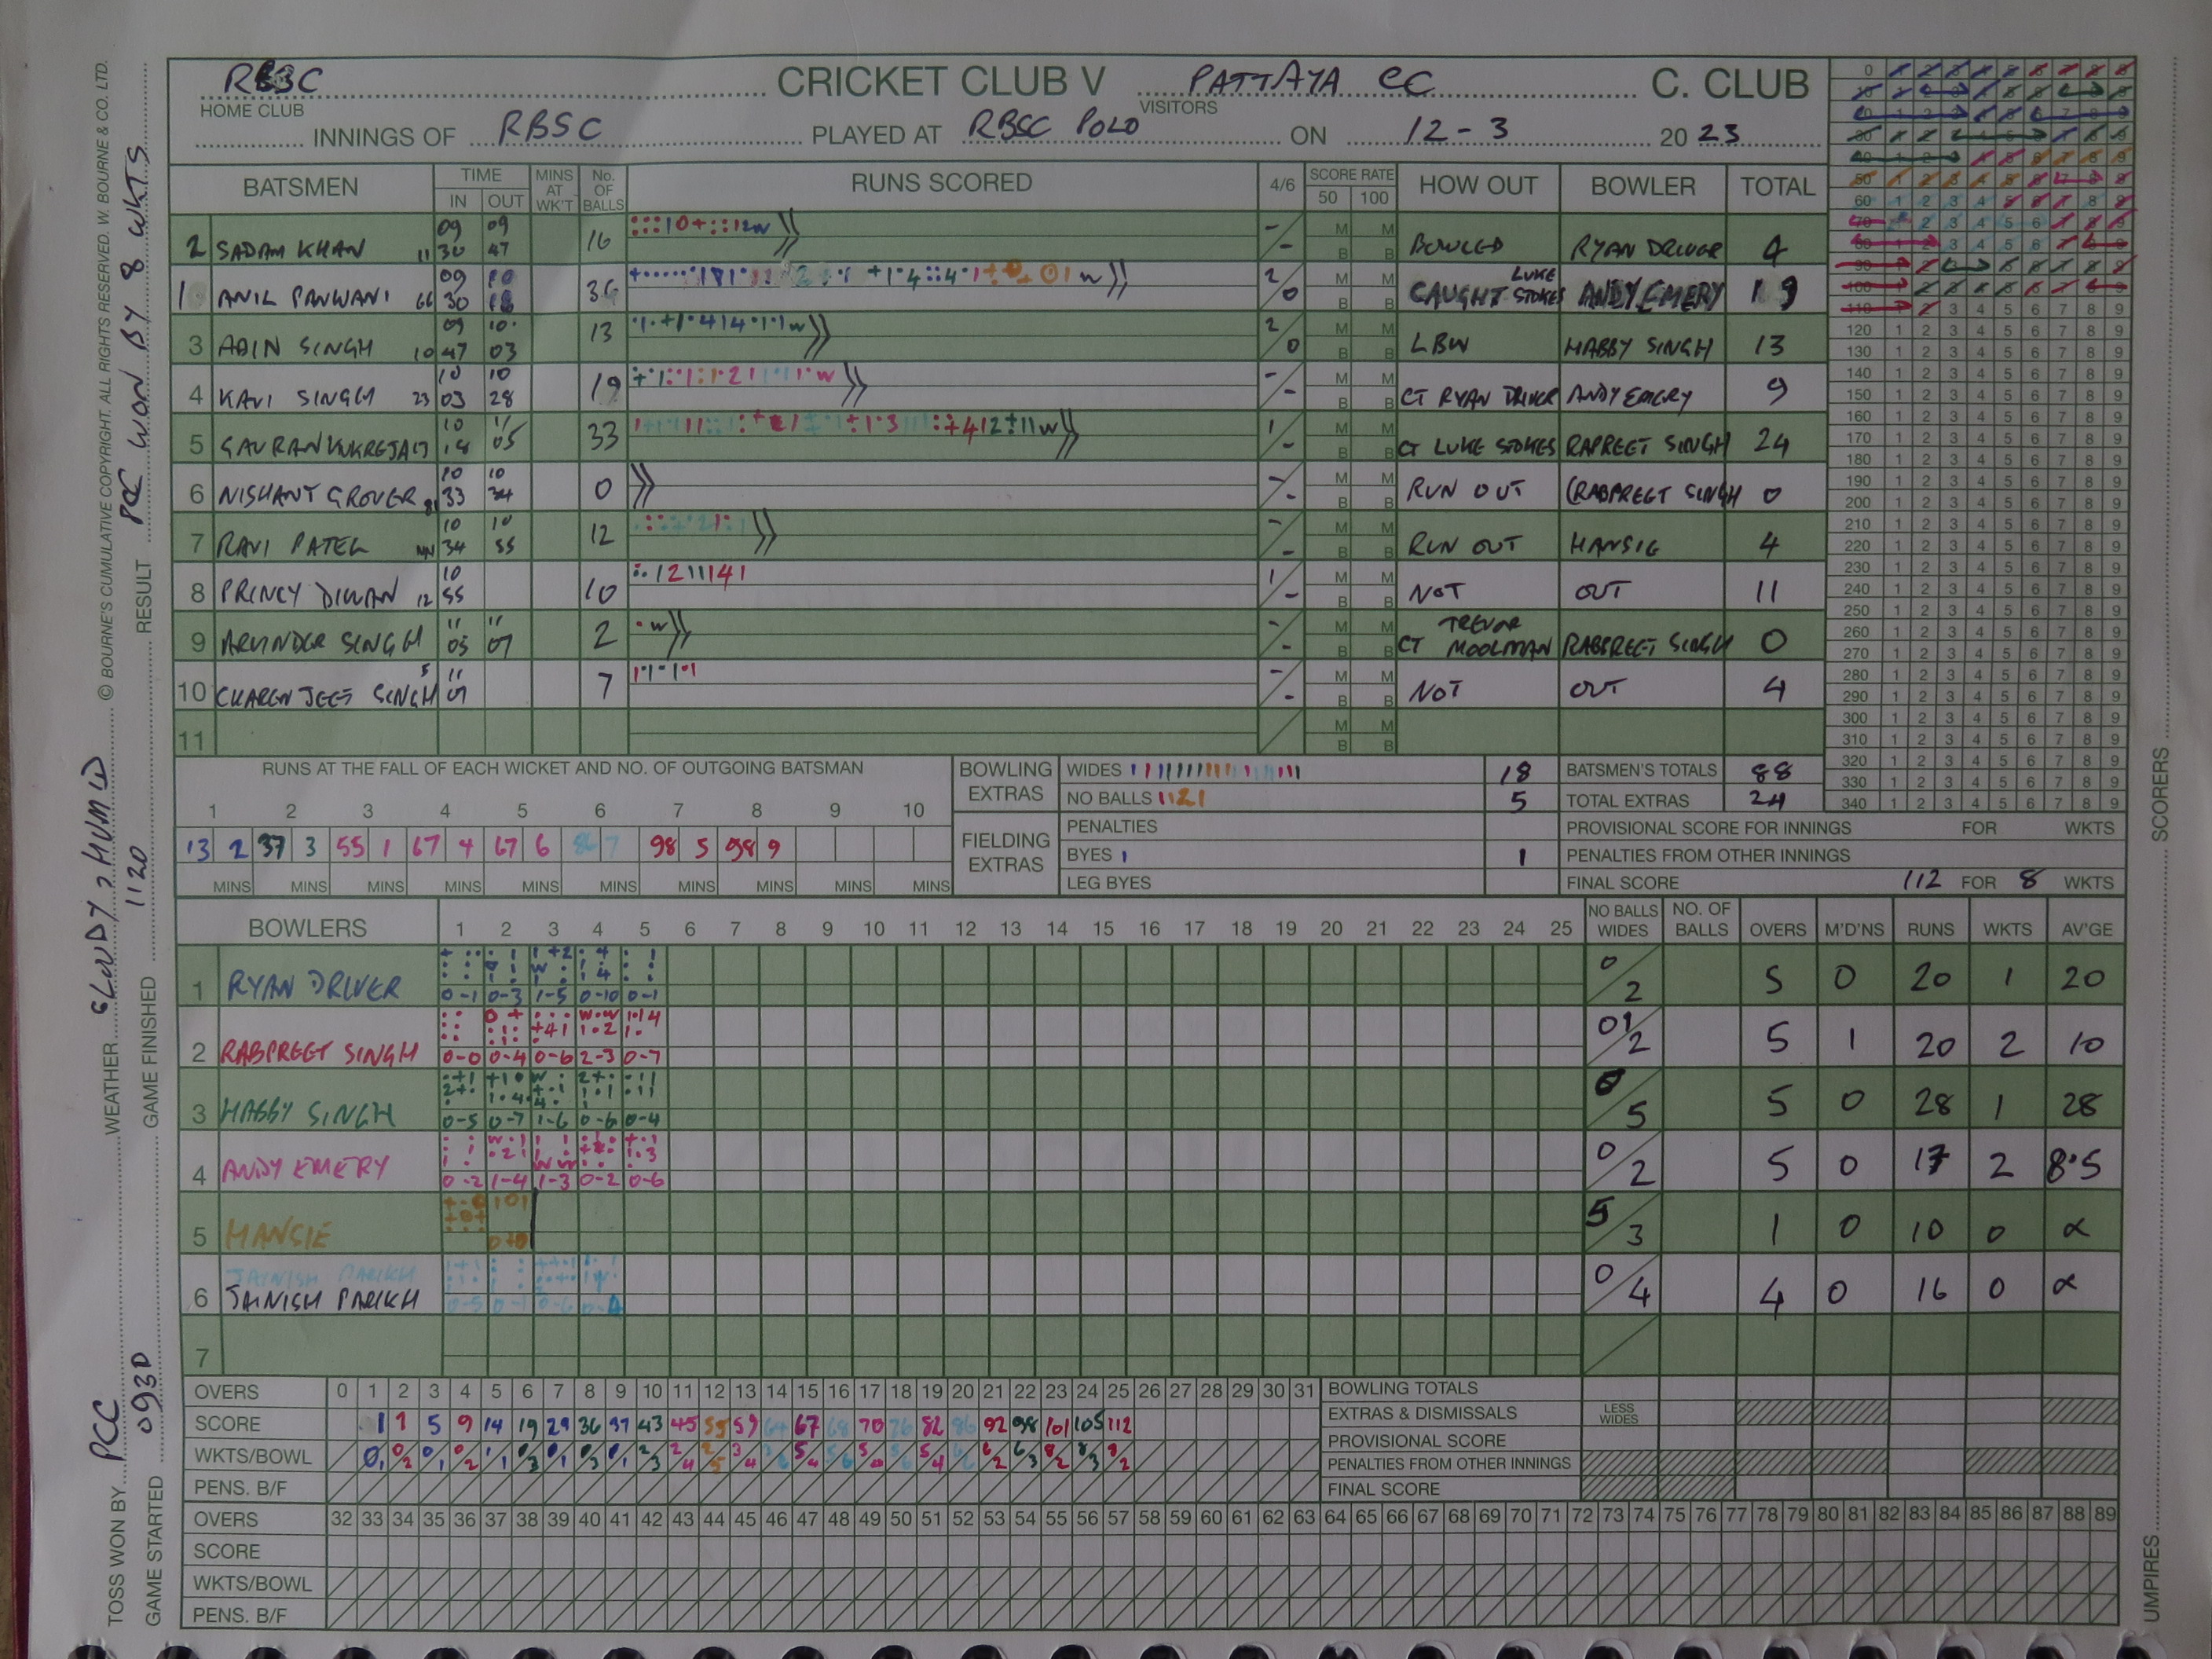 RBSC CRICKET CLUB V PATTAYA CC C. CLUB
HOME CLUB VISITORS
INNINGS OF RBSC PLAYED AT RBSC POLO ON 12-3 2023
BATSMEN TIME IN OUT MINS AT WK'T No. OF BALLS RUNS SCORED 4/6 SCORE RATE 50 100 HOW OUT BOWLER TOTAL
2 SADAM KHAN 11 09 30 09 47 16 BOWLED RYAN DRIVER 4
1 ANIL PANWANI 66 09 30 10 18 36 2/0 CAUGHT LUKE STOKES ANDY EMERY 19
3 ADIN SINGH 10 09 47 10 03 13 2/0 LBW HABBY SINGH 13
4 KAVI SINGH 23 10 03 10 28 19 -/- CT RYAN DRIVER ANDY EMERY 9
5 GAURAN KUKREJA 10 18 11 05 33 1/- CT LUKE STOKES RAPREET SINGH 24
6 NISHANT GROVER 10 33 10 34 0 -/- RUN OUT (RABPREET SINGH 0
7 RAVI PATEL NN 10 34 10 55 12 -/- RUN OUT HANSIE 4
8 PRINCY DIWAN 12 10 55 10 1/- NOT OUT 11
9 ARVINDER SINGH 11 05 11 07 2 -/- CT TREVOR MOOLMAN RABPREET SINGH 0
10 CHARENJEET SINGH 5 11 07 7 -/- NOT OUT 4
11
RUNS AT THE FALL OF EACH WICKET AND NO. OF OUTGOING BATSMAN
1 2 3 4 5 6 7 8 9 10
13 2 37 3 55 1 67 4 67 6 86 7 98 5 98 9
MINS MINS MINS MINS MINS MINS MINS MINS MINS MINS
BOWLING EXTRAS WIDES 18
NO BALLS 1121 5
FIELDING EXTRAS PENALTIES
BYES 1 1
LEG BYES
BATSMEN'S TOTALS 88
TOTAL EXTRAS 24
PROVISIONAL SCORE FOR INNINGS FOR WKTS
PENALTIES FROM OTHER INNINGS
FINAL SCORE 112 FOR 8 WKTS
BOWLERS 1 2 3 4 5 6 7 8 9 10 11 12 13 14 15 16 17 18 19 20 21 22 23 24 25 NO BALLS WIDES NO. OF BALLS OVERS M'D'NS RUNS WKTS AV'GE
1 RYAN DRIVER 0-1 0-3 1-5 0-10 0-1 0/2 5 0 20 1 20
2 RABPREET SINGH 0-0 0-4 0-6 2-3 0-7 01/2 5 1 20 2 10
3 HABBY SINGH 0-5 0-7 1-6 0-6 0-4 0/5 5 0 28 1 28
4 ANDY EMERY 0-2 1-4 1-3 0-2 0-6 0/2 5 0 17 2 8.5
5 HANSIE 5/3 1 0 10 0 α
6 JAINISH PARIKH
JAINISH PARIKH 0-5 0-1 0-6 0-4 0/4 4 0 16 0 α
7
OVERS 0 1 2 3 4 5 6 7 8 9 10 11 12 13 14 15 16 17 18 19 20 21 22 23 24 25 26 27 28 29 30 31 BOWLING TOTALS
SCORE 1 1 5 9 14 19 29 36 37 43 45 55 59 64 67 68 70 76 82 86 92 98 101 105 112 EXTRAS & DISMISSALS LESS WIDES
PROVISIONAL SCORE
WKTS/BOWL PENALTIES FROM OTHER INNINGS
PENS. B/F FINAL SCORE
OVERS 32 33 34 35 36 37 38 39 40 41 42 43 44 45 46 47 48 49 50 51 52 53 54 55 56 57 58 59 60 61 62 63 64 65 66 67 68 69 70 71 72 73 74 75 76 77 78 79 80 81 82 83 84 85 86 87 88 89
SCORE
WKTS/BOWL
PENS. B/F
TOSS WON BY PCC WEATHER CLOUDY, HUMID © BOURNE'S CUMULATIVE COPYRIGHT. ALL RIGHTS RESERVED. W. BOURNE & CO. LTD.
GAME STARTED 0930 GAME FINISHED 1120 RESULT PCC WON BY 8 WKTS
UMPIRES SCORERS